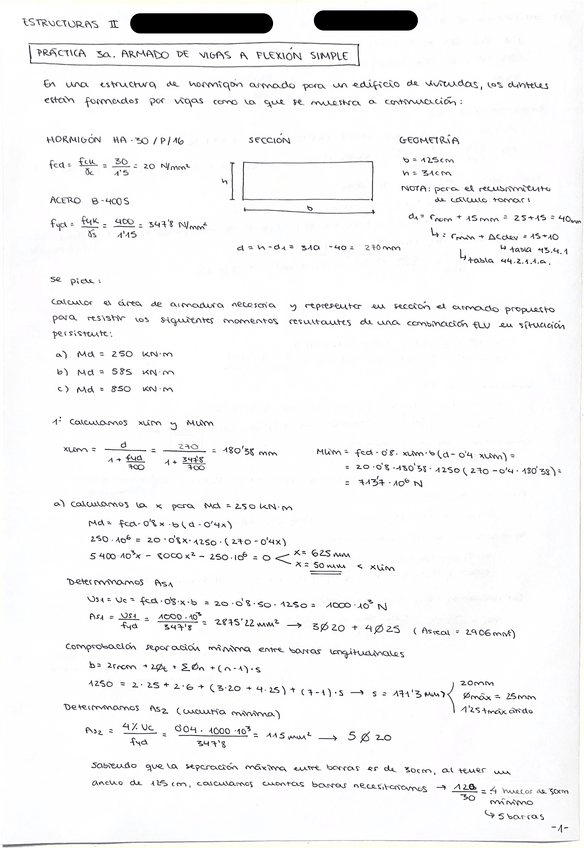 ESTRUCTURAS II
PRÁCTICA 3a. ARMADO DE VIGAS A FLEXIÓN SIMPLE
En una estructura de hormigón armado para un edificio de viviendas, los dinteles
están formados por vigas como la que se muestra a continuación:
HORMIGÓN HA-30/P/16
fcd = fck/γc = 30/1'5 = 20 N/mm²
ACERO B-400S
fyd = fyk/γs = 400/1'15 = 347'8 N/mm²
SECCIÓN
h
b
d = h - d1 = 310 - 40 = 270mm
GEOMETRÍA
b = 125cm
h = 31cm
NOTA: para el recubrimiento
de cálculo tomar:
d1 = rnom + 15mm = 25+15 = 40mm
↳ = rmin + ΔCdev = 15+10
↳ tabla 43.4.1
↳ tabla 44.2.1.1.a.
Se pide:
Calcular el área de armadura necesaria y representar en sección el armado propuesto
para resistir los siguientes momentos resultantes de una combinación ELU en situación
persistente:
a) Md = 250 KN·m
b) Md = 585 KN·m
c) Md = 850 KN·m
1º Calculamos xlim y Mlim
xlim = d/(1 + fyd/700) = 270/(1 + 347'8/700) = 180'38 mm
Mlim = fcd · 0'8 · xlim · b (d - 0'4 · xlim) =
= 20 · 0'8 · 180'38 · 1250 (270 - 0'4 · 180'38) =
= 713'7 · 10⁶ N
a) Calculamos la x para Md = 250 KN·m
Md = fcd · 0'8x · b (d - 0'4x)
250·10⁶ = 20 · 0'8x · 1250 · (270 - 0'4x)
5400·10³x - 8000x² - 250·10⁶ = 0 x = 625 mm
x = 50 mm < xlim
Determinamos As1
Us1 = Uc = fcd · 0'8 · x · b = 20 · 0'8 · 50 · 1250 = 1000·10³ N
As1 = Us1/fyd = 1000·10³/347'8 = 2875'22 mm² → 3Ø20 + 4Ø25 (As real = 2906 mm²)
Comprobación separación mínima entre barras longitudinales
b = 2rnom + 2Øt + ΣØn + (n-1)·s
1250 = 2·25 + 2·6 + (3·20 + 4·25) + (7-1)·s → s = 171'3 mm
20mm
Ømáx = 25mm
1'25 tmáx árido
Determinamos As2 (cuantía mínima)
As2 = 4% Uc/fyd = 0'04 · 1000·10³/347'8 = 115 mm² → 5Ø20
Sabiendo que la separación máxima entre barras es de 30cm, al tener un
ancho de 125cm, calculamos cuantas barras necesitaríamos → 120/30 = 4 huecos de 30cm
mínimo
↳ 5 barras
-1-